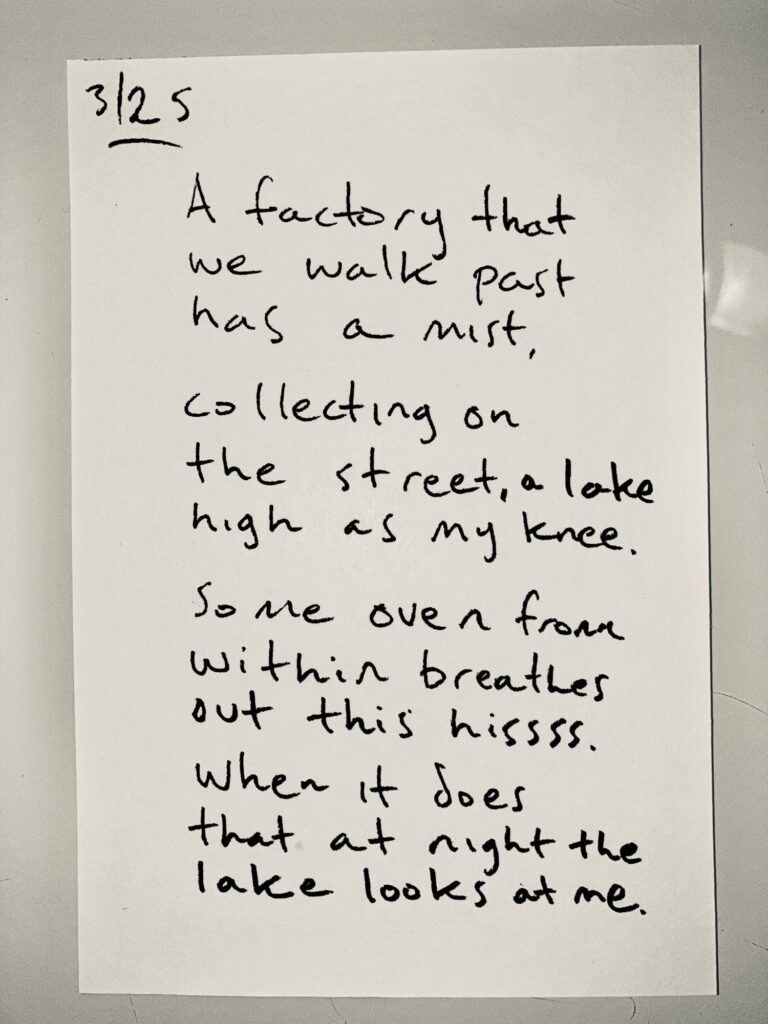 3/25
A factory that
we walk past
has a mist,
collecting on
the street, a lake
high as my knee.
Some oven from
within breathes
out this hissss.
When it does
that at night the
lake looks at me.